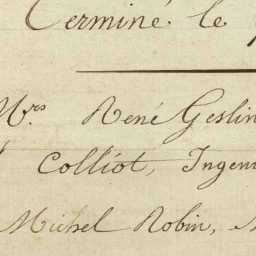 Terminé le
Mrs. René Geslin
Colliot, Ingeni
Michel Robin,